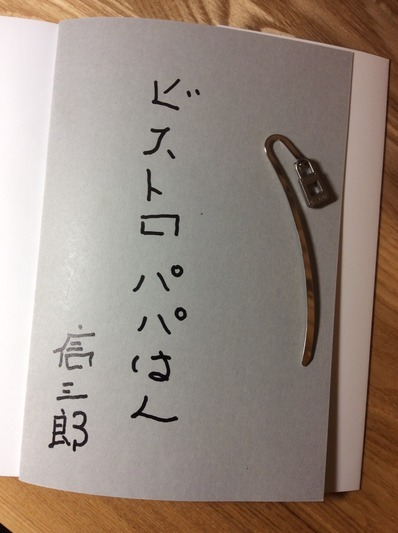 ビストロパパはん
信三郎